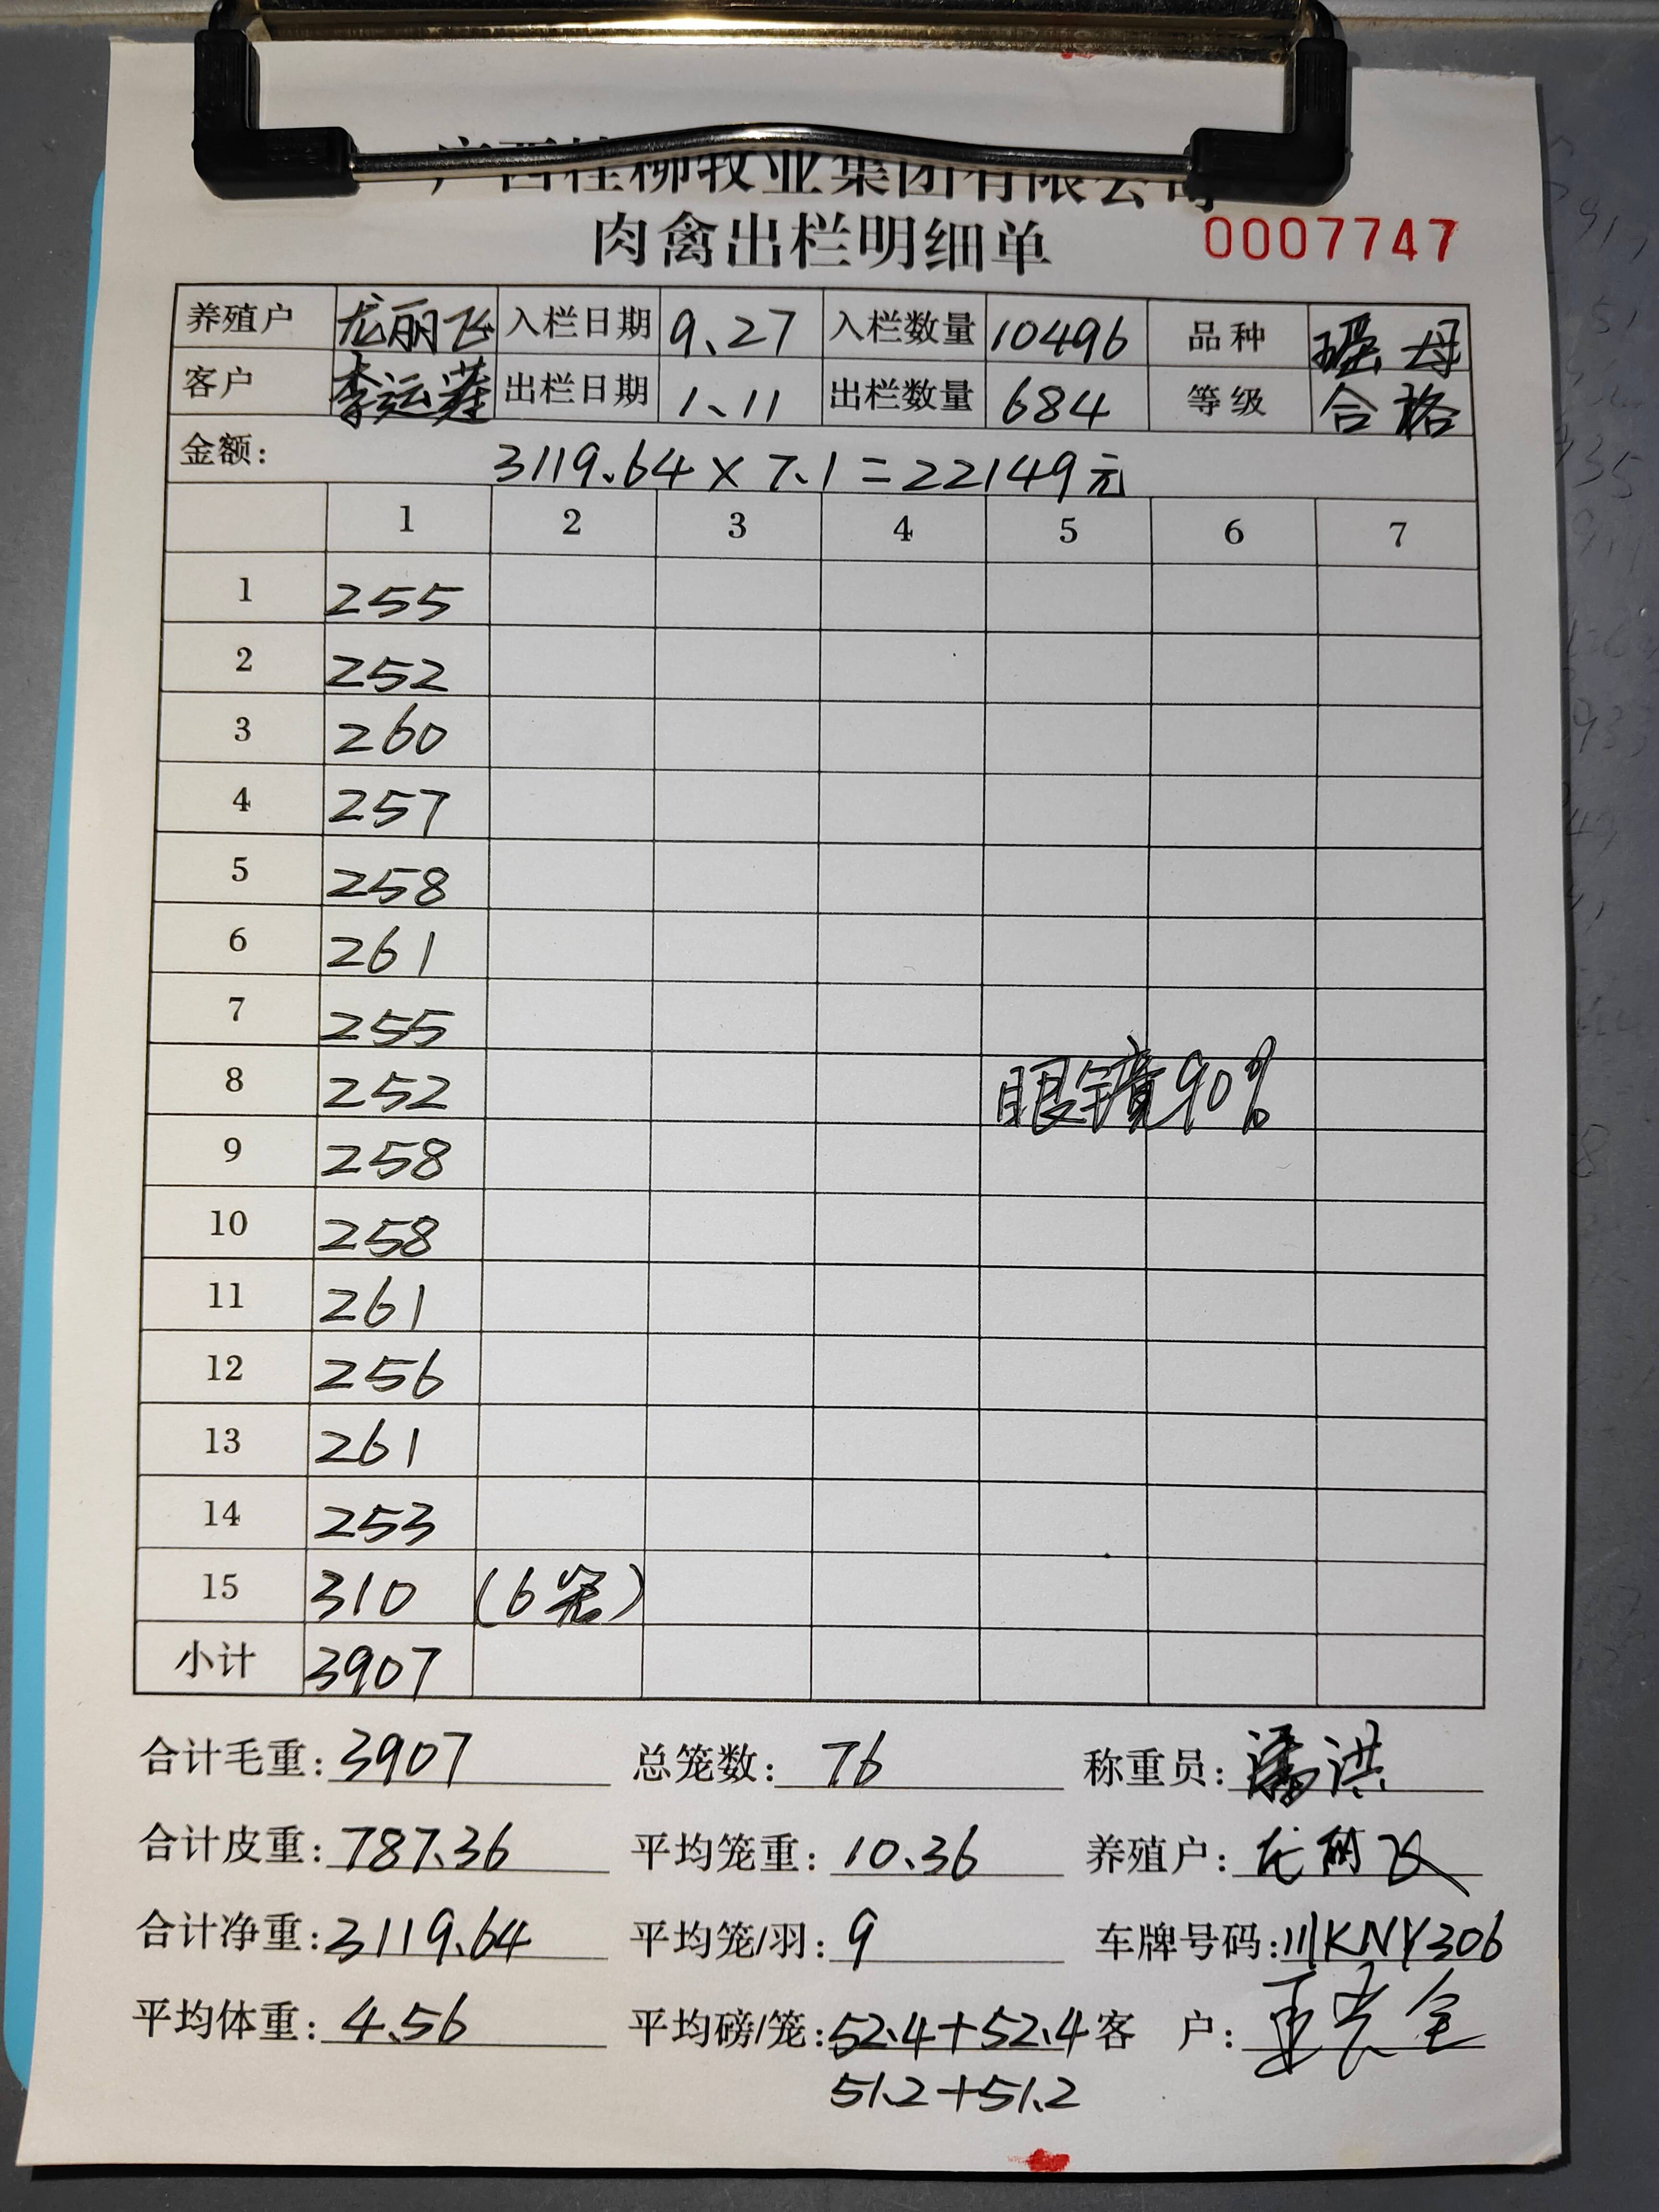 广西桂柳牧业集团有限公司
肉禽出栏明细单 0007747
养殖户 龙丽飞 入栏日期 9.27 入栏数量 10496 品种 瑶母
客户 李运莲 出栏日期 1.11 出栏数量 684 等级 合格
金额: 3119.64×7.1=22149元
1 2 3 4 5 6 7
1 255
2 252
3 260
4 257
5 258
6 261
7 255
8 252 眼镜90%
9 258
10 258
11 261
12 256
13 261
14 253
15 310 (6笼)
小计 3907
合计毛重: 3907 总笼数: 76 称重员: 潘洪
合计皮重: 787.36 平均笼重: 10.36 养殖户: 龙丽飞
合计净重: 3119.64 平均笼/羽: 9 车牌号码: 川KNY306
平均体重: 4.56 平均磅/笼: 52.4+52.4 客 户:
51.2+51.2